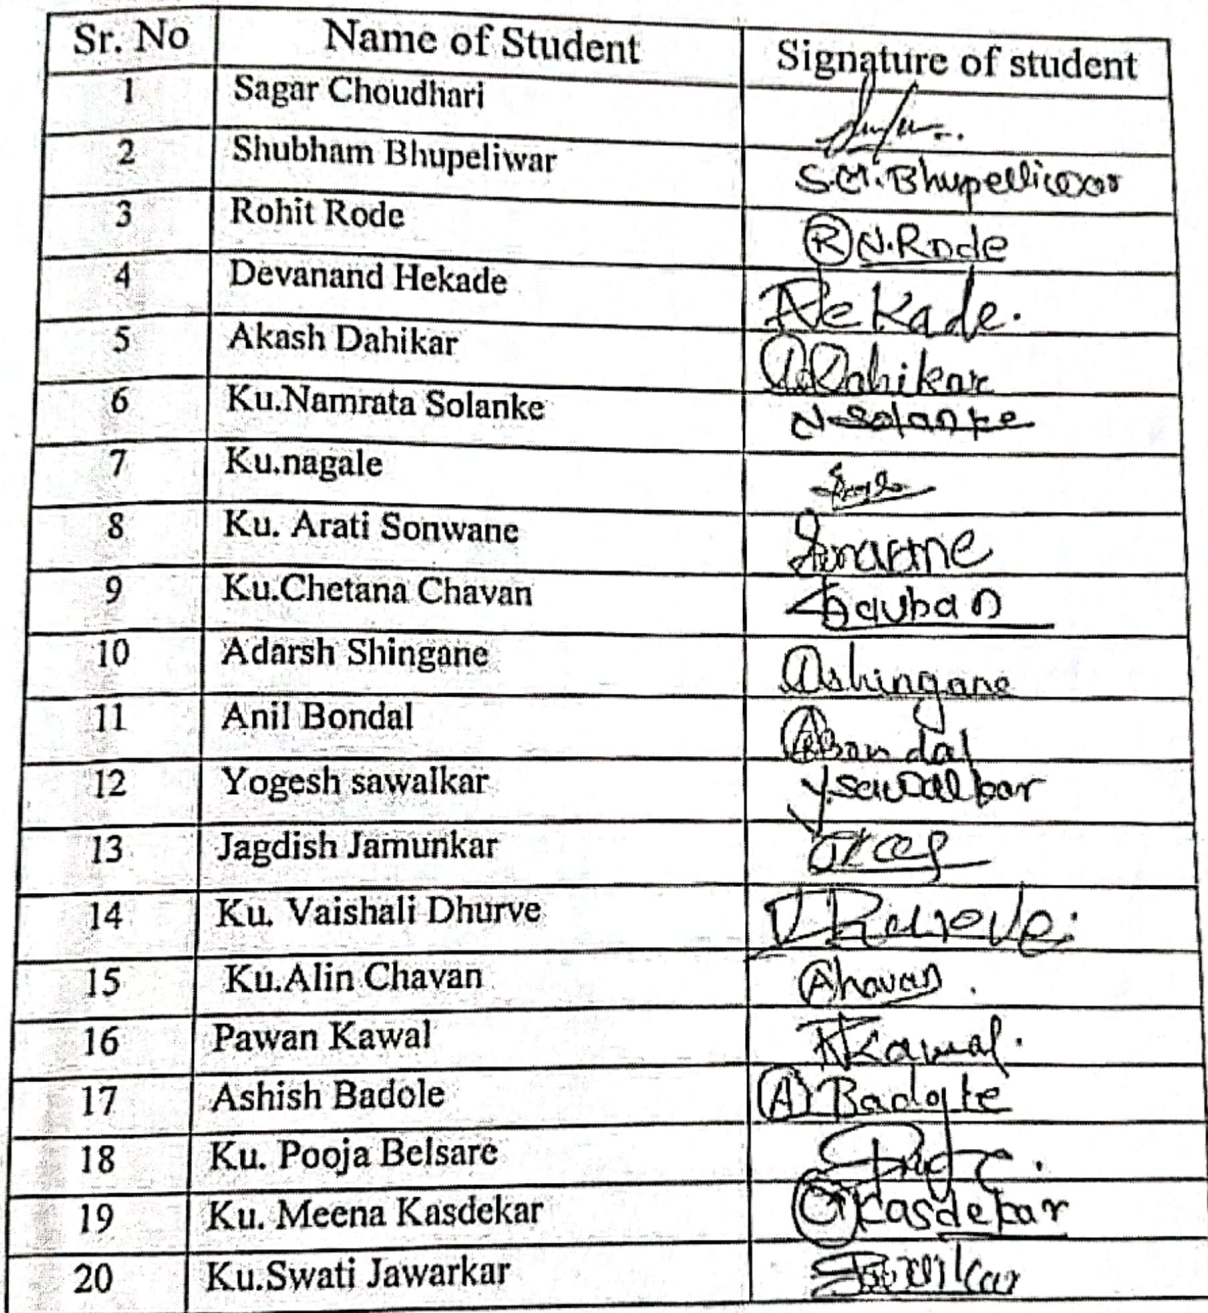 Sr. No Name of Student Signature of student
1 Sagar Choudhari
2 Shubham Bhupeliwar S.M.Bhupelliwar
3 Rohit Rode R N.Rode
4 Devanand Hekade Hekade.
5 Akash Dahikar A.Dahikar
6 Ku.Namrata Solanke N.Solanke
7 Ku.nagale
8 Ku. Arati Sonwane
9 Ku.Chetana Chavan Chauhan
10 Adarsh Shingane Ashingane
11 Anil Bondal A Bondal
12 Yogesh sawalkar Y.sawalkar
13 Jagdish Jamunkar
14 Ku. Vaishali Dhurve
15 Ku.Alin Chavan Ahavan.
16 Pawan Kawal PKawal.
17 Ashish Badole A Badole
18 Ku. Pooja Belsare
19 Ku. Meena Kasdekar Kasdekar
20 Ku.Swati Jawarkar